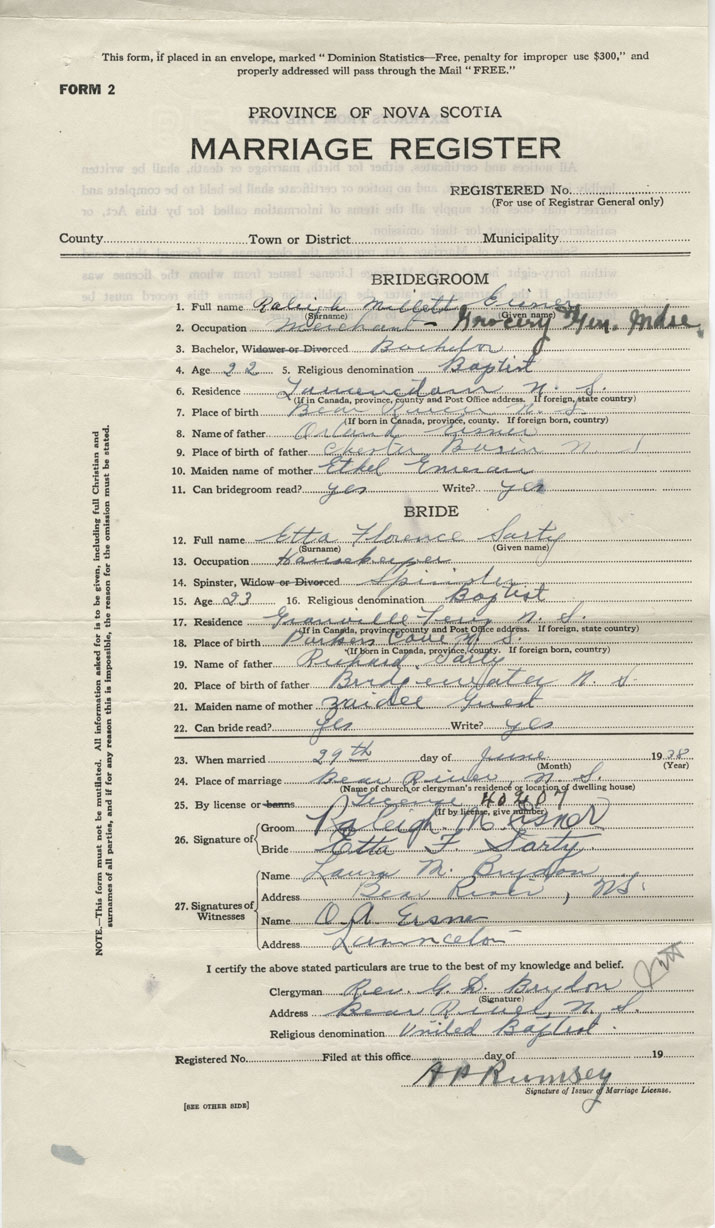 This form, if placed in an envelope, marked "Dominion Statistics—Free, penalty for improper use $300," and
properly addressed will pass through the Mail "FREE."
FORM 2
PROVINCE OF NOVA SCOTIA
MARRIAGE REGISTER
REGISTERED No.
(For use of Registrar General only)
County Town or District Municipality
BRIDEGROOM
1. Full name Raleigh Millett Eisner
(Surname) (Given name)
2. Occupation Merchant – Grocery & Gen. Mdse.
3. Bachelor, Widower or Divorced Bachelor
4. Age 22 5. Religious denomination Baptist
6. Residence N. S.
(If in Canada, province, county and Post Office address. If foreign, state country)
7. Place of birth Bear River N. S.
(If born in Canada, province, county. If foreign born, country)
8. Name of father Orland Eisner
9. Place of birth of father Chester Basin N. S
10. Maiden name of mother Ethel
11. Can bridegroom read? yes Write? yes
BRIDE
12. Full name Etta Florence Sarty
(Surname) (Given name)
13. Occupation Housekeeper
14. Spinster, Widow or Divorced Spinster
15. Age 23 16. Religious denomination Baptist
17. Residence Granville Ferry N. S.
(If in Canada, province, county and Post Office address. If foreign, state country)
18. Place of birth Parkers Cove N. S.
(If born in Canada, province, county. If foreign born, country)
19. Name of father Richard Sarty
20. Place of birth of father Bridgewater N. S.
21. Maiden name of mother Zaidee Guest
22. Can bride read? yes Write? yes
23. When married 29th day of June 1938
(Month) (Year)
24. Place of marriage Bear River, N. S.
(Name of church or clergyman's residence or location of dwelling house)
25. By license or banns License
(If by license, give number)
26. Signature of Groom Raleigh M. Eisnor
Bride Etta F. Sarty
27. Signatures of Witnesses Name Laura M. Brydon
Address Bear River, NS.
Name O. A. Eisner
Address
NOTE.—This form must not be mutilated. All information asked for is to be given, including full Christian and
surnames of all parties, and if for any reason this is impossible, the reason for the omission must be stated.
I certify the above stated particulars are true to the best of my knowledge and belief.
Clergyman Rev. G. D. Brydon
(Signature)
Address Bear River, N. S.
Religious denomination United Baptist.
Registered No. Filed at this office day of 19
A P Rumsey
Signature of Issuer of Marriage License.
[SEE OTHER SIDE]